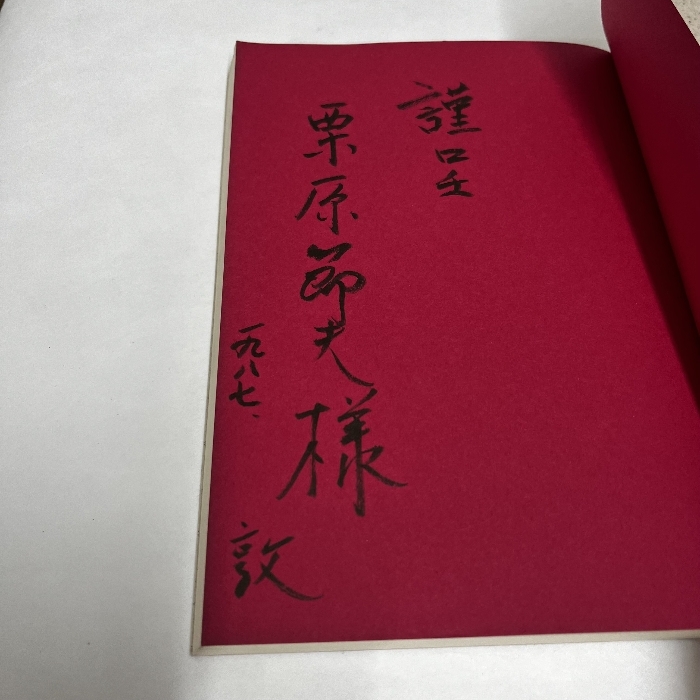 謹呈
栗原節夫様
一九八七、
敦